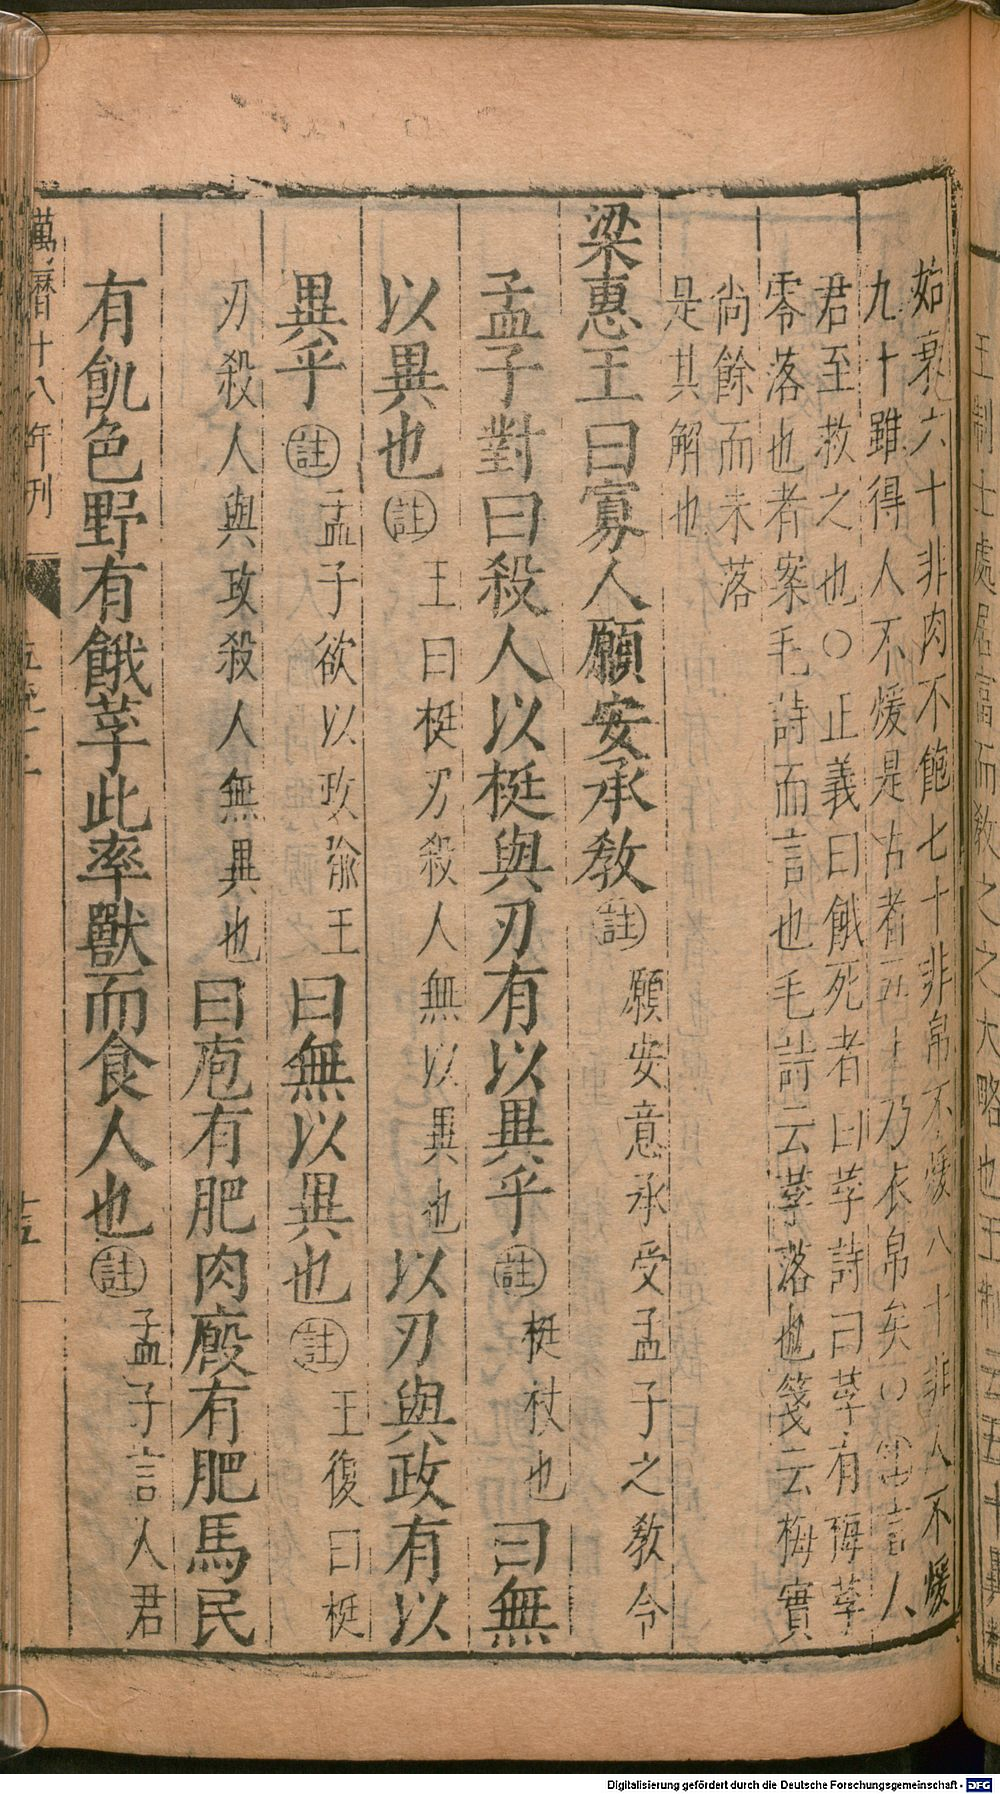 始衰六十非肉不飽七十非帛不煖八十非人不煖
九十雖得人不煖是古者五十乃衣帛矣○
君至救之也○正義曰餓死者曰莩詩曰莩有梅莩
零落也者案毛詩而言也毛詩云莩落也箋云梅實
尚餘而未落
是其解也
梁惠王曰寡人願安承教註願安意承受孟子之教令
孟子對曰殺人以梃與刃有以異乎註梃杖也曰無
以異也註王曰梃刃殺人無以異也以刃與政有以
異乎註孟子欲以政喻王曰無以異也註王復曰梃
刃殺人與攻殺人無異也曰庖有肥肉廄有肥馬民
有飢色野有餓莩此率獸而食人也註孟子言人君
萬曆十八年刊
Digitalisierung gefördert durch die Deutsche Forschungsgemeinschaft - DFG